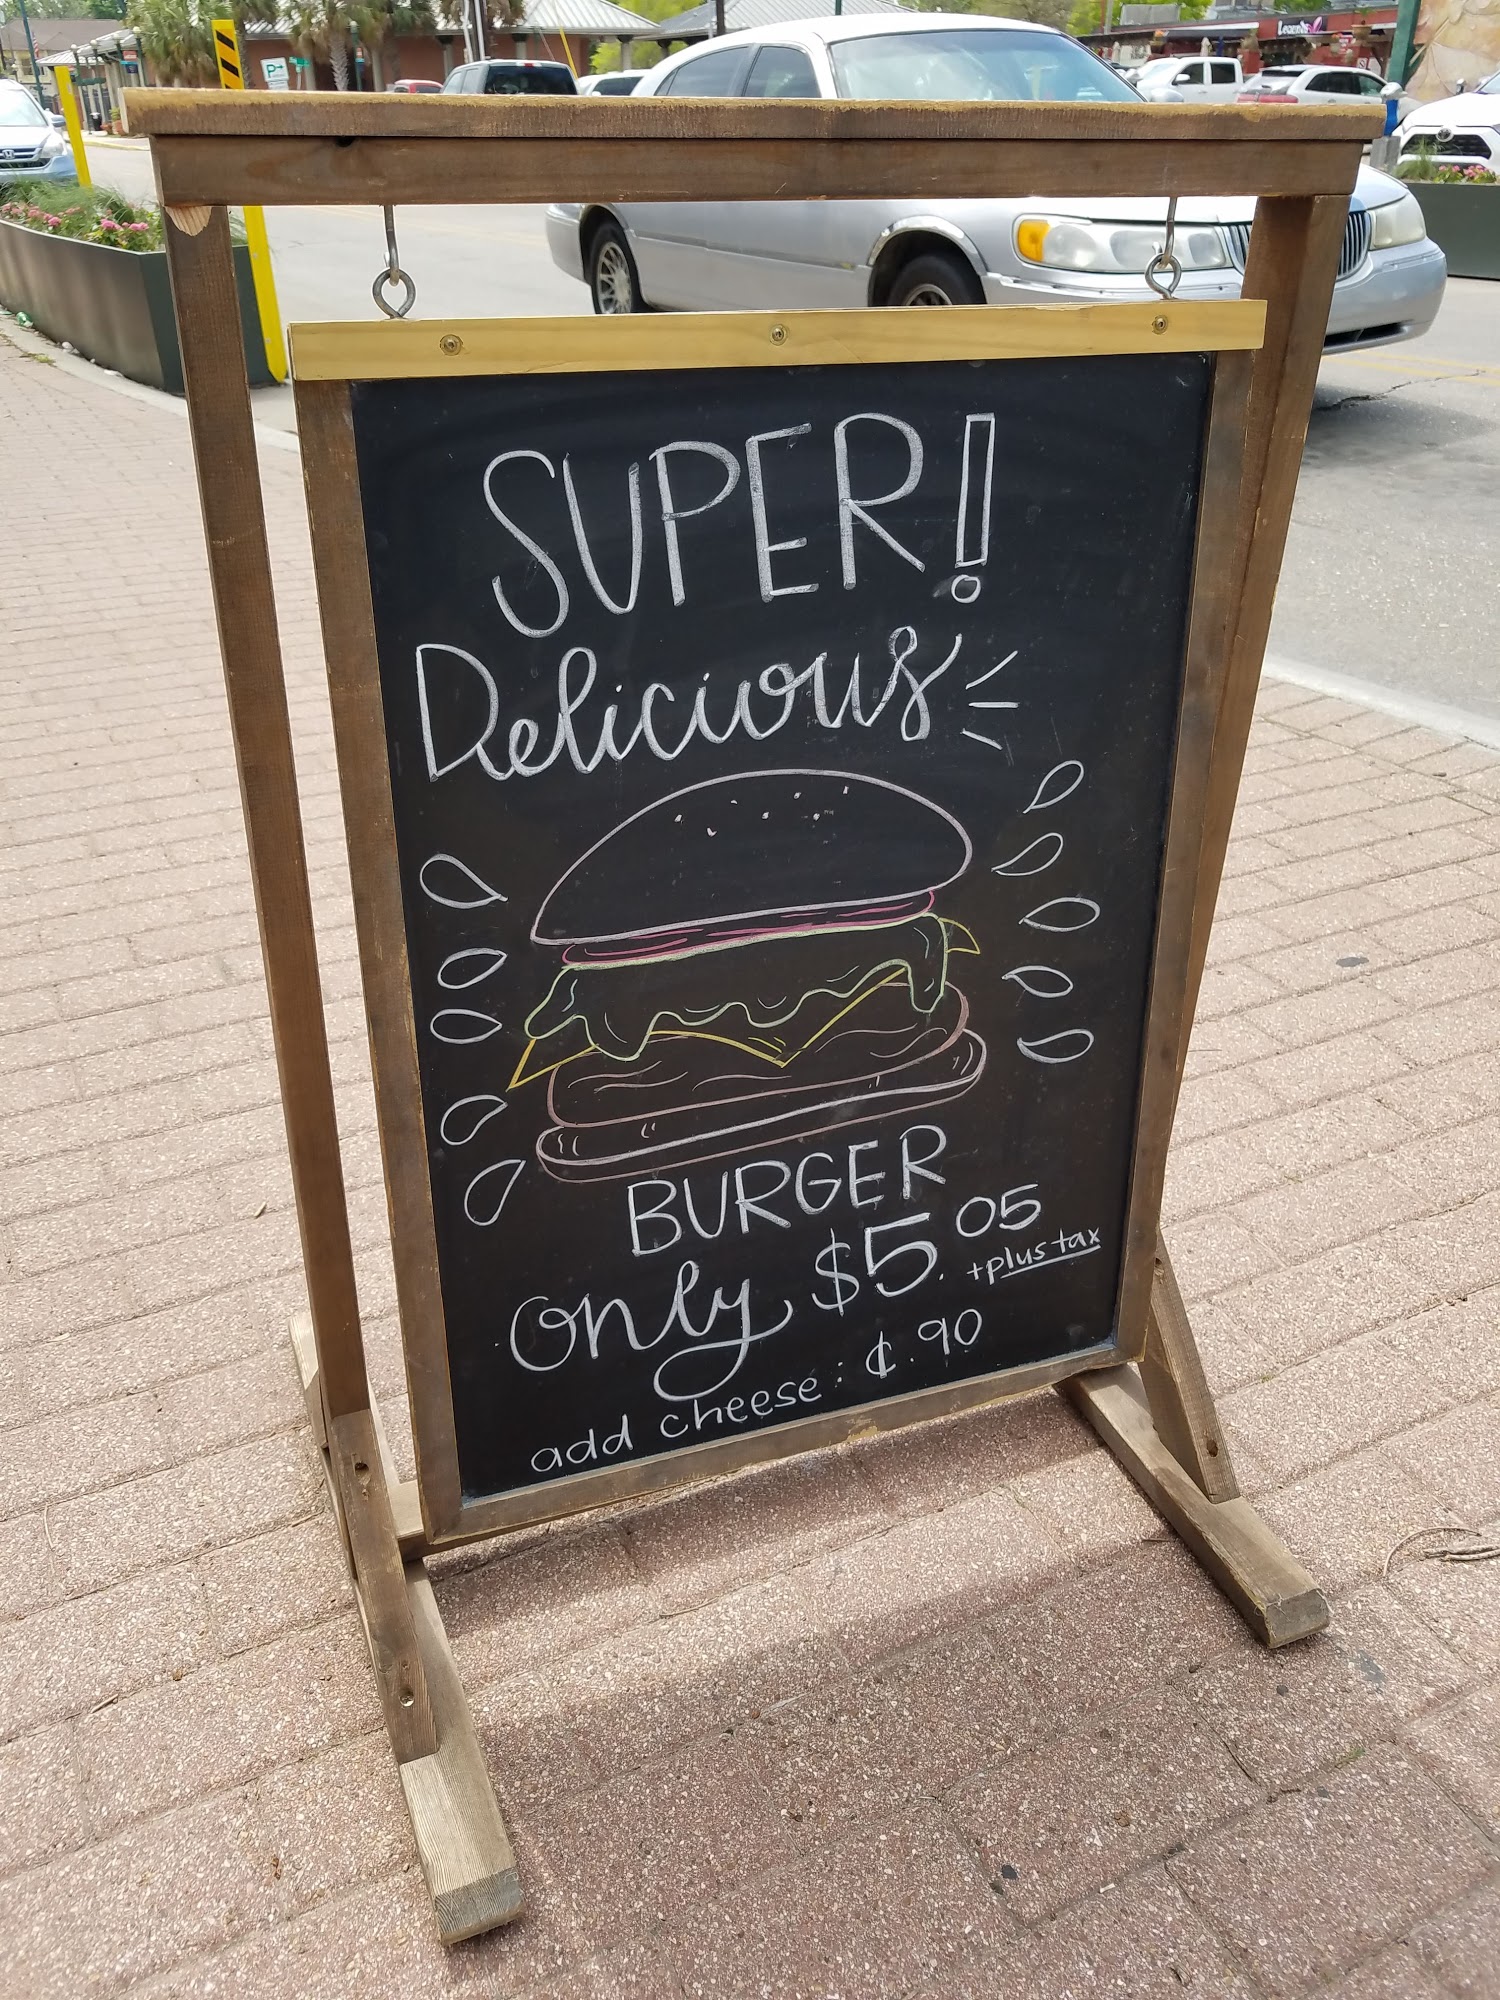 Legends
P
SUPER!
Delicious
BURGER
only $5.05
+plus tax
add cheese: ¢.90